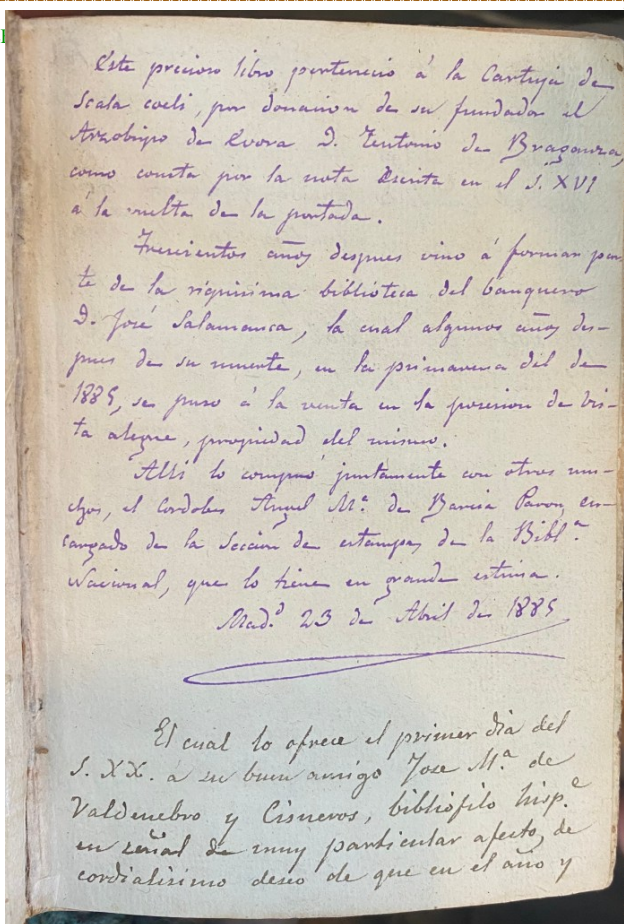 Este precioso libro perteneció á la Cartuja de
Scala coeli, por donacion de su fundador el
Arzobispo de Evora D. Teutonio de Braganza,
como consta por la nota escrita en el S. XVI
a la vuelta de la portada.
Trescientos años despues vino á formar par-
te de la riquisima biblioteca del banquero
D. José Salamanca, la cual algunos años des-
pues de su muerte, en la primavera del de
1885, se puso á la venta en la posesion de Vis-
ta alegre, propiedad del mismo.
Alli lo compró juntamente con otros mu-
chos, el cordobes Angel Mª. de Barcia Pavon, en-
cargado de la Seccion de estampas de la Bibl.ª
Nacional, que lo tiene en grande estima.
Mad.d 23 de Abril de 1885
El cual lo ofrece el primer dia del
S. XX. a su buen amigo Jose Mª. de
Valdenebro y Cisneros, bibliófilo hisp.e
en señal de muy particular afecto, de
cordialisimo deseo de que en el año y